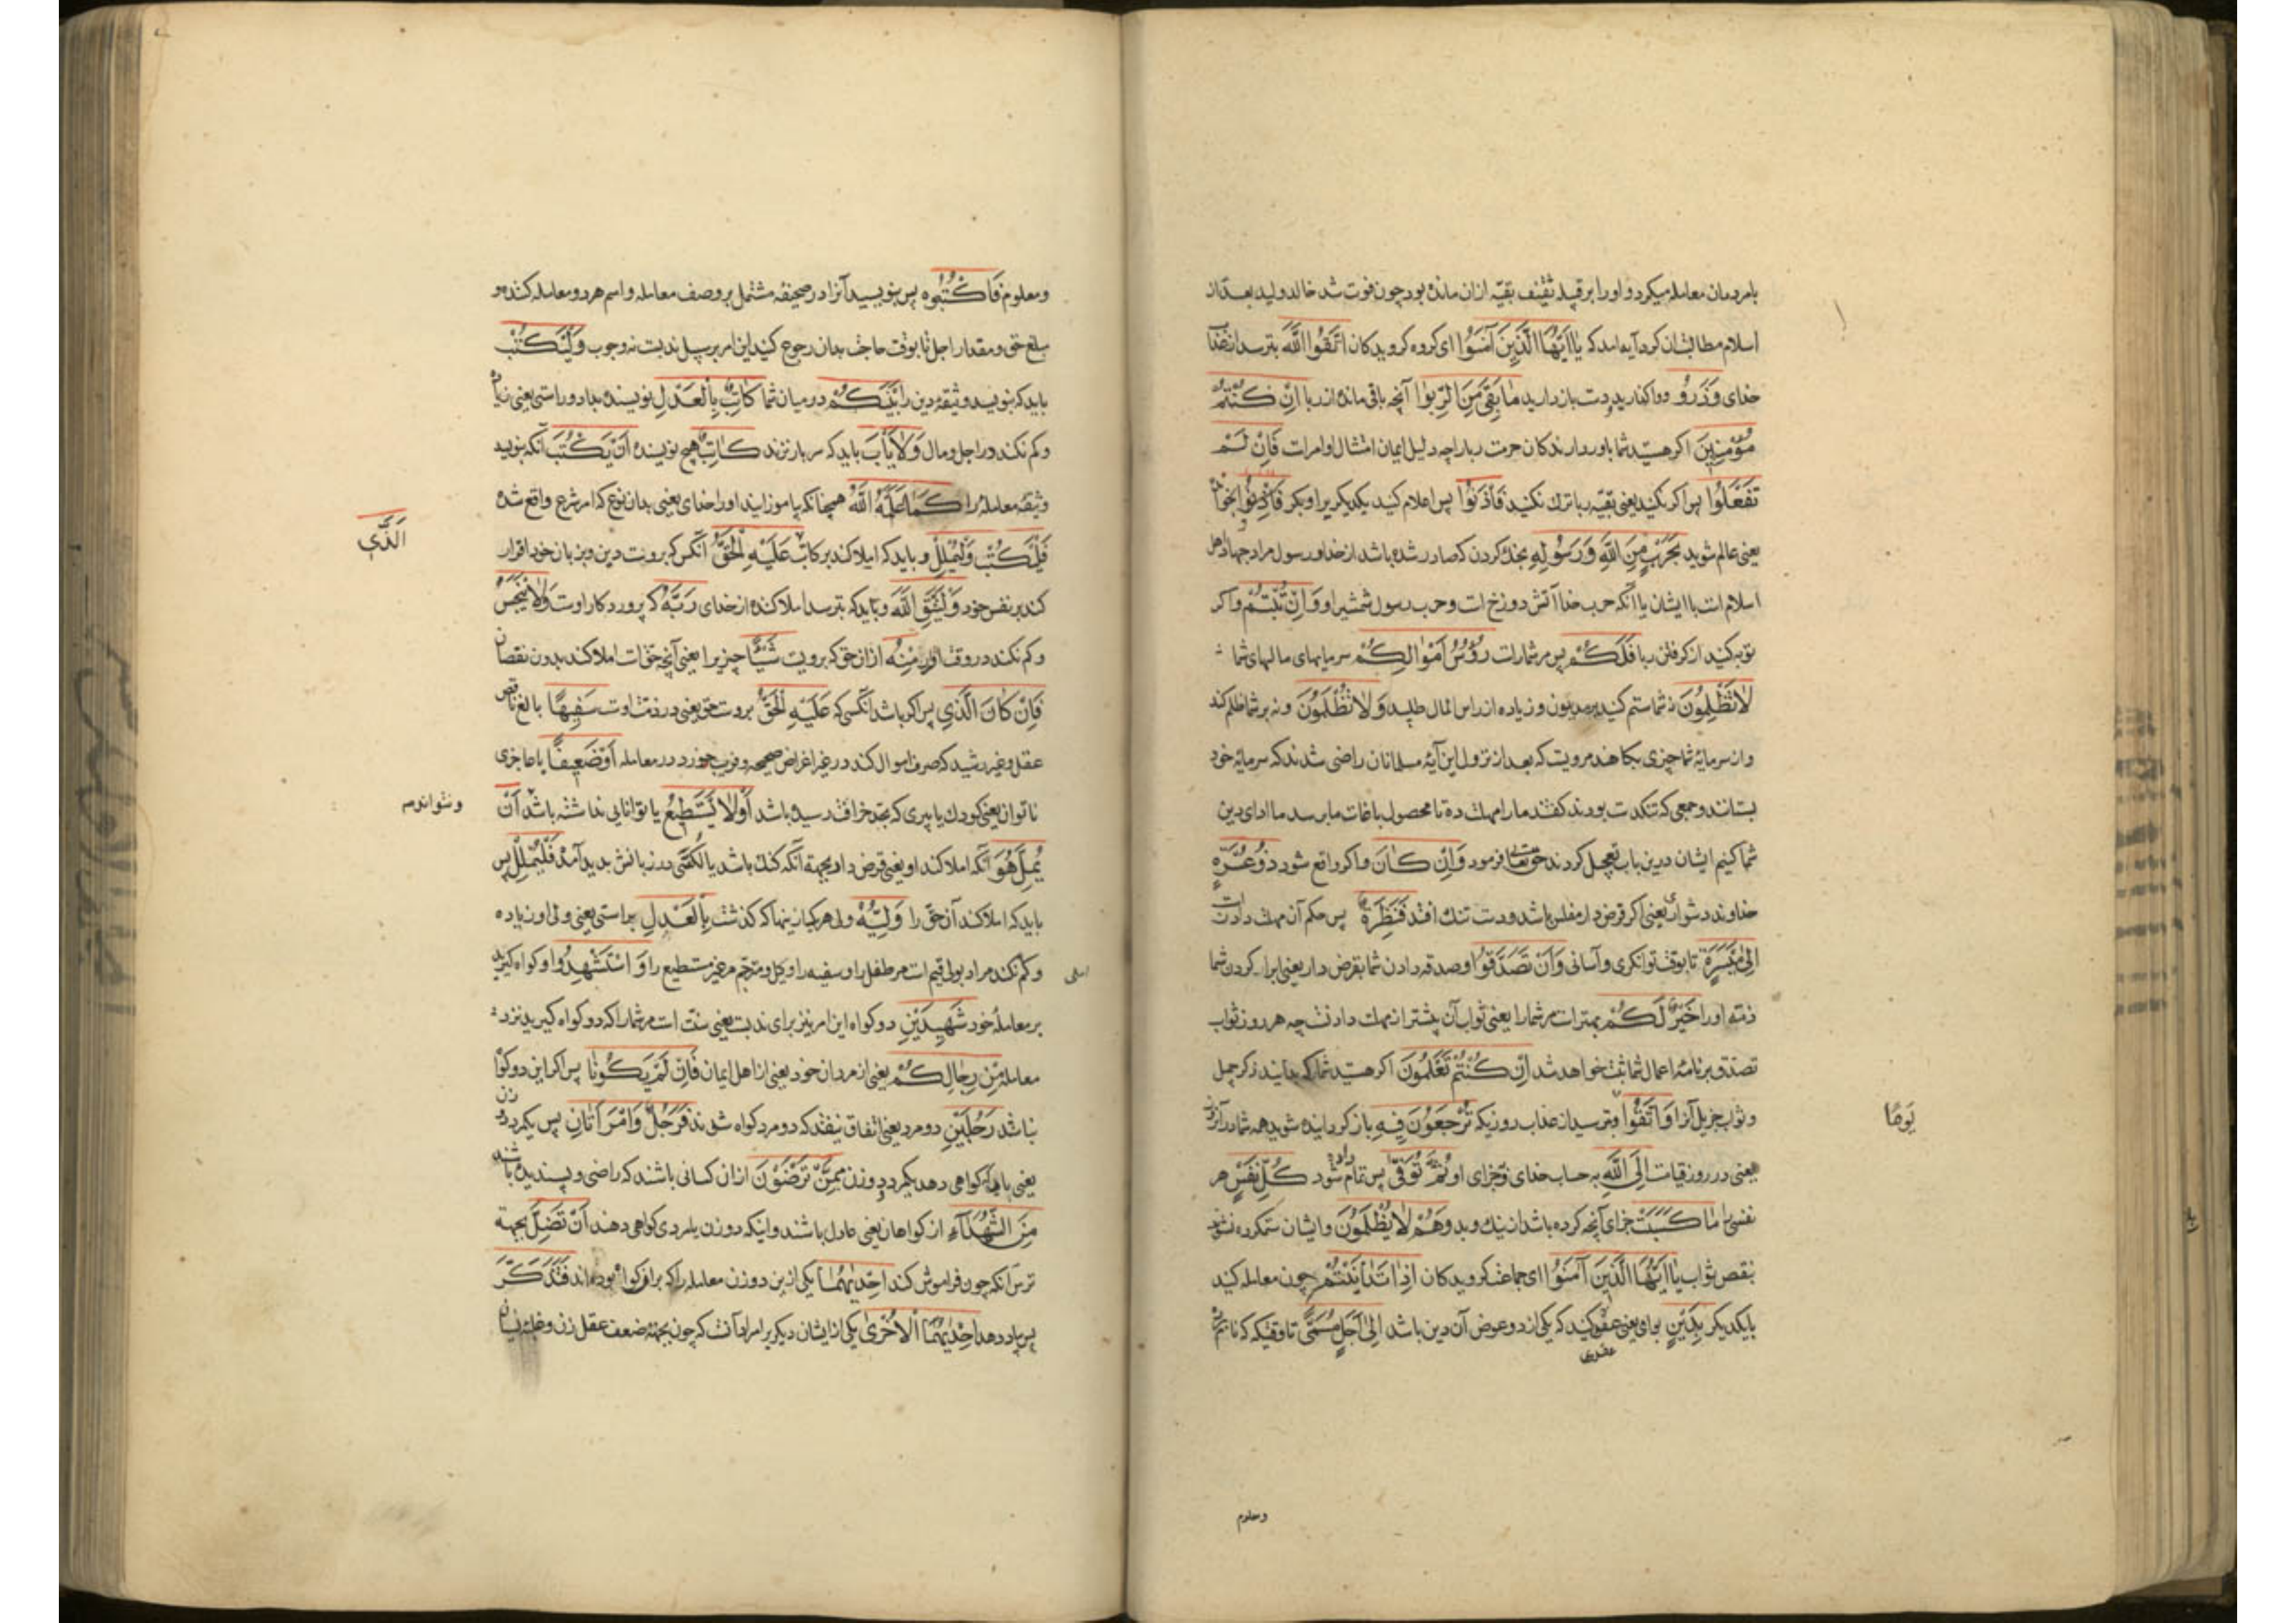 بامردمان معامله میکرد و اورا بر قبیله ثقیف بقیه ازان مانده بود چون فوت شد خالد ولید بعد از
اسلام مطالبه ان کرد آیه امد که یَا اَیُّهَا الَّذِینَ آمَنُوا ای کروه کرویدکان اتَّقُوا اللّٰهَ بترسید از
خدای وَذَرُوا و واکذارید و دست بازدارید مَا بَقِیَ مِنَ الرِّبٰوا آنچه باقی مانده از ربا اِنْ کُنْتُمْ
مُؤْمِنِینَ اکر هستید شما باور دارندکان حرمت ربا را چه دلیل ایمان امتثال اوامرست فَاِنْ لَمْ
تَفْعَلُوا پس اکر نکنید یعنی بقیه ربا ترک نکنید فَأْذَنُوا پس اعلام کنید یکدیکر را
یعنی عالم شوید بِحَرْبٍ مِنَ اللّٰهِ وَرَسُولِهِ بجنک کردن که صادر شده باشد از خدا و رسول مراد جهاد اهل
اسلام است با ایشان یا آنکه حرب خدا آتش دوزخ است و حرب رسول شمشیر او وَاِنْ تُبْتُمْ و اکر
توبه کنید از کرفتن ربا فَلَکُمْ پس مر شماراست رُؤُسُ اَمْوَالِکُمْ سرمایهای مالهای شما
لَا تَظْلِمُونَ نه شما ستم کنید بر مدیون و زیاده از راس المال طلبید وَلَا تُظْلَمُونَ و نه بر شما ظلم کند
و از سرمایۀ شما چیزی بکاهند مرویست که بعد از نزول این آیۀ مسلمانان راضی شدند که سرمایۀ خود
بستانند و جمعی که تنکدست بودند کفتند ما را مهلت ده تا محصول باغات ما برسد ما ادای دین
شما کنیم ایشان درین باب تعجیل کردند حق تعالی فرمود وَاِنْ کَانَ و اکر واقع شود ذُو عُسْرَةٍ
خداوند دشواری یعنی اکر قرض دار مفلس باشد و دست تنک افتد فَنَظِرَةٌ پس حکم آن مهلت دادنست
اِلٰی مَیْسَرَةٍ تا بوقت توانکری و آسانی وَاَنْ تَصَدَّقُوا و صدقه دادن شما بقرض دار یعنی ابرا کردن شما
ذمه او را خَیْرٌ لَکُمْ بهتر است مر شما را یعنی ثواب آن بیشتر از مهلت دادنست چه هر روز ثواب
تصدق بر نامۀ اعمال شما ثبت خواهد شد اِنْ کُنْتُمْ تَعْلَمُونَ اکر هستید شما که بدانید ذکر جمیل
و ثواب جزیل آنرا وَاتَّقُوا و بترسید از عذاب روزیکه تُرْجَعُونَ فِیهِ باز کردانیده شوید همه شما در آنروز
یَومًا
یعنی در روز قیامت اِلَی اللّٰهِ به حساب خدای و جزای او ثُمَّ تُوَفّٰی پس تمام داده شود کُلُّ نَفْسٍ هر
نفسی را مَا کَسَبَتْ جزای آنچه کرده باشد از نیک و بد وَهُمْ لَا یُظْلَمُونَ و ایشان ستمکرده نشوند
بنقص ثواب یَا اَیُّهَا الَّذِینَ آمَنُوا ای جماعت کرویدکان اِذَا تَدَایَنْتُمْ چون معامله کنید
بایکدیکر بِدَیْنٍ بوامی یعنی عقدی کنید که یکی از دو عوض آن دین باشد اِلٰی اَجَلٍ مُسَمًّی تا وقتیکه
عقدی
ومعلوم
ومعلوم فَاکْتُبُوهُ پس بنویسید آنرا در صحیفه مشتمل بر وصف معامله و اسم هر دو معامله کننده و
مبلغ حق و مقدار اجل تا بوقت حاجت بدان رجوع کنید این امر بر سبیل ندبست نه وجوب وَلْیَکْتُبْ
باید که بنویسد وثیقۀ دین را بَیْنَکُمْ در میان شما کَاتِبٌ بِالْعَدْلِ نویسندۀ بداد و راستی یعنی زیاده
و کم نکند در اجل و مال وَلَا یَأْبَ باید که سر باز نزند کَاتِبٌ هیچ نویسندۀ اَنْ یَکْتُبَ آنکه بنویسد
وثیقه معامله را کَمَا عَلَّمَهُ اللّٰهُ همچنانکه بیاموزانید او را خدای یعنی بدان نوع که امر شرع واقع شده
فَلْیَکْتُبْ وَلْیُمْلِلْ و باید که املا کند بر کاتب عَلَیْهِ الْحَقُّ آنکس که بروست دین و بزبان خود اقرار
الَّذِی
کند بر نفس خود وَلْیَتَّقِ اللّٰهَ و باید که بترسد املا کنندۀ از خدای رَبَّهُ که پروردکار اوست وَلَا یَبْخَسْ
و کم نکند در وقت اقرار مِنْهُ ازان حق که بروست شَیْئًا چیزیرا یعنی آنچه حق است املا کند بدون نقصان
فَاِنْ کَانَ الَّذِی پس اکر باشد آنکسی که عَلَیْهِ الْحَقُّ بروست حق یعنی در ذمت اوست سَفِیهًا بالغ ناقص
عقل و غیر رشید که صرف اموال کند در غیر اغراض صحیحه و فریب خورد در معامله اَوْ ضَعِیفًا یا عاجزی
ناتوان یعنی کودک یا پیری که بحد خرافت رسیده باشد اَوْ لَا یَسْتَطِیعُ یا توانایی نداشته باشد اَنْ
یُمِلَّ هُوَ آنکه املا کند او یعنی قرض دار بجهة آنکه کنک باشد یا لکنتی در زبانش بدید آمده فَلْیُمْلِلْ پس
باید که املا کند آن حق را وَلِیُّهُ ولی هر یک از ینها که کذشت بِالْعَدْلِ براستی یعنی ولی او زیاده
و کم نکند مراد بولی قیم است مر طفل را و سفیه را و وکیل و مترجم مر غیر مستطیع را وَاسْتَشْهِدُوا و کواه کیرید
بر معاملۀ خود شَهِیدَیْنِ دو کواه این امر نیز برای ندبست یعنی سنت است مر شما را که دو کواه کیرید نزد
معامله مِنْ رِجَالِکُمْ یعنی از مردان خود یعنی از اهل ایمان فَاِنْ لَمْ یَکُونَا پس اکر این دو کواه
نباشد رَجُلَیْنِ دو مرد یعنی اتفاق نیفتد که دو مرد کواه شوند فَرَجُلٌ وَامْرَأَتَانِ پس یکمرد و دو زن
یعنی باید که کواهی دهد یکمرد و دو زن مِمَّنْ تَرْضَوْنَ ازان کسانی باشند که راضی و پسندیده باشند
مِنَ الشُّهَدَآءِ از کواهان یعنی عادل باشند و اینکه دو زن بامردی کواهی دهند اَنْ تَضِلَّ بجهة
ترس آنکه چون فراموش کند اِحْدٰیهُمَا یکی ازین دو زن معامله را که بران کواه بوده اند فَتُذَکِّرَ
پس یاد دهد اِحْدٰیهُمَا الْاُخْرٰی یکی از ایشان دیکر را مراد آنست که چون بجهة ضعف عقل زن و غلبۀ نسیان